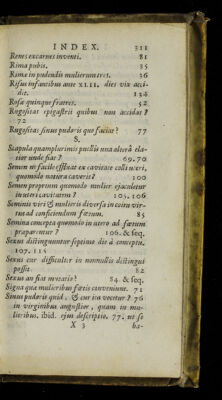 INDEX. 311
Renes excarnes inventi. 81
Rima pubis. 35
Rimæ in pudendis mulierum tres. 26
Risus infantibus ante XLII. dies vix acci-
dit. 128
Rosæ quinque fratres. 52
Rugositas epigastrii quibus non accidat?
72
Rugositas sinus pudoris quo faciat? 77
S.
Scapula quamplurimis puellis una altera ela-
tior unde fiat? 69. 70
Semen ne facile effluat ex cavitate colli uteri,
quomodo natura caverit? 100
Semen proprium quomodo mulier ejaculetur
in uteri cavitatem? 105. 106
Seminis viri & mulieris diversa in coitu vir-
tus ad conficiendum fœtum. 85
Semina concepta quomodo in utero ad fœtum
præparentur? 106. & seq.
Sexus distinguuntur septimo die à conceptu.
107. 114
Sexus cur difficulter in nonnullis distingui
possit. 82
Sexus an fiat mutatio? 84. & seq.
Signa quæ mulieribus fœtis conveniunt. 71
Sinus pudoris quid, & cur ita vocetur? 76
in virginibus angustior, quam in mu-
lieribus. ibid. ejus descriptio. 77. ut se
X 3 ha-